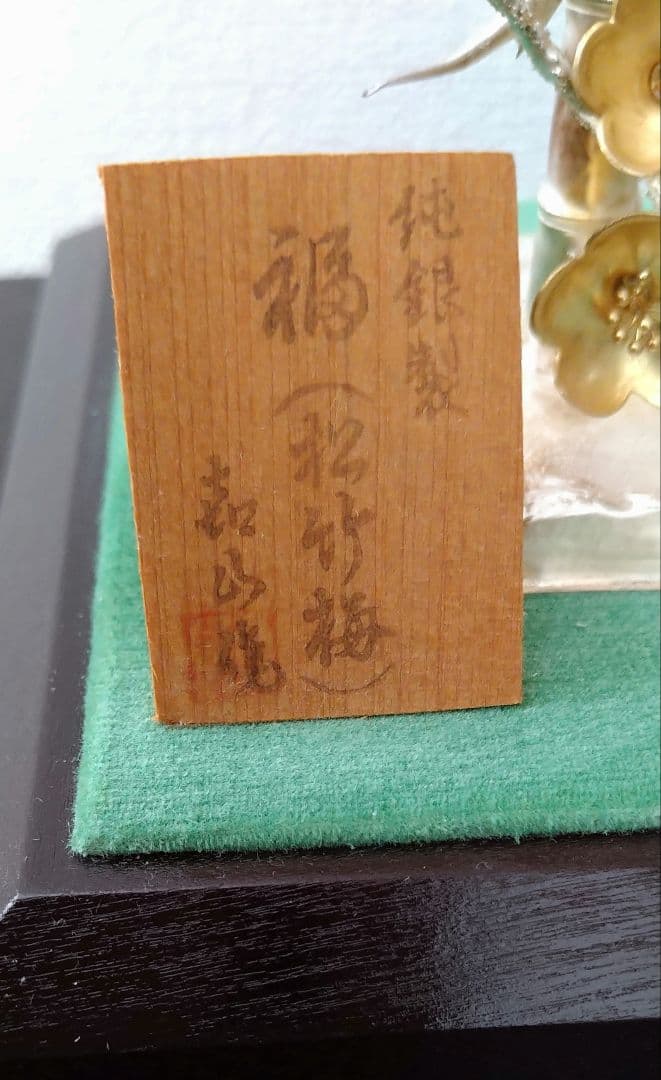 純銀製
福(松竹梅)
山